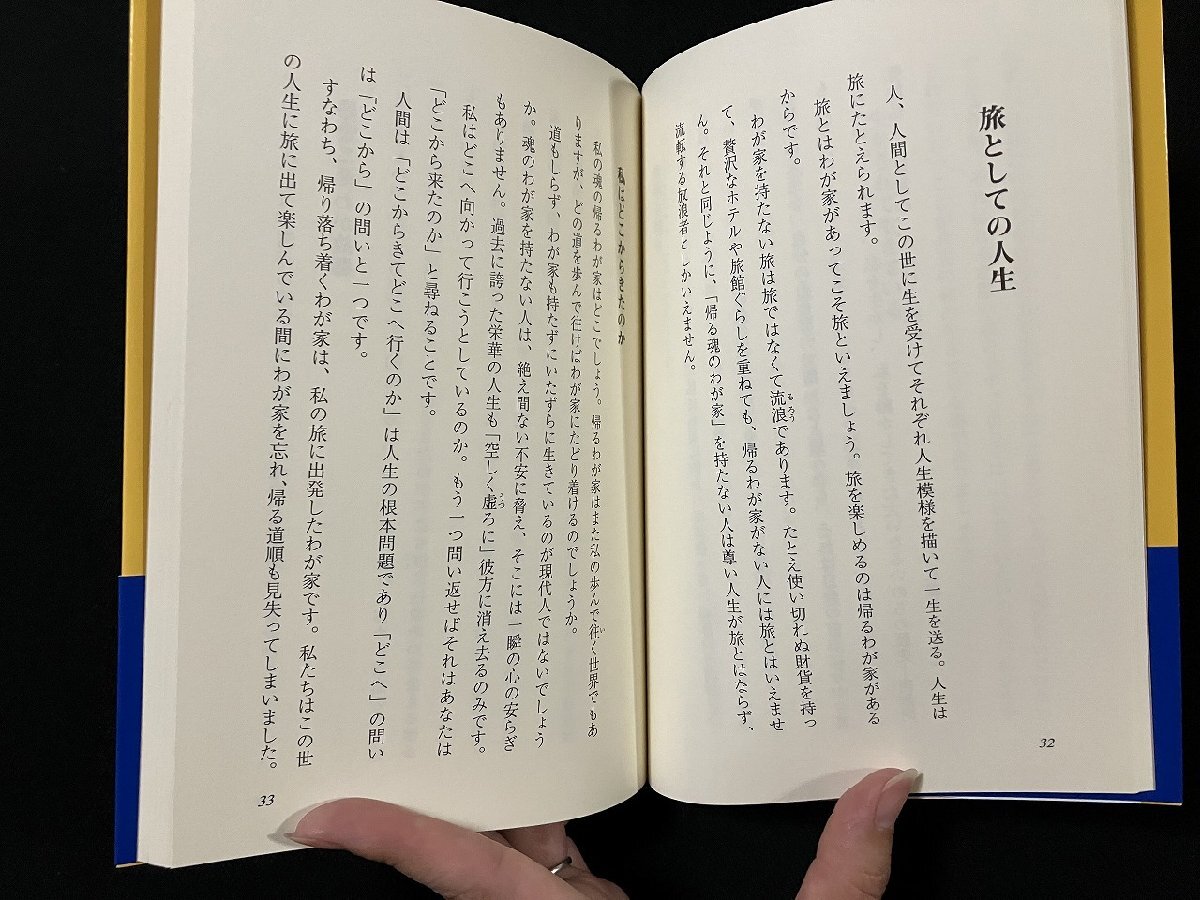 旅としての人生
人、人間としてこの世に生を受けてそれぞれ人生模様を描いて一生を送る。人生は
旅にたとえられます。
旅とはわが家があってこそ旅といえましょう。旅を楽しめるのは帰るわが家がある
からです。
わが家を持たない旅は旅ではなくて流浪であります。たとえ使い切れぬ財貨を持っ
て、贅沢なホテルや旅館ぐらしを重ねても、帰るわが家がない人には旅とはいえませ
ん。それと同じように、「帰る魂のわが家」を持たない人は尊い人生が旅とはならず、
流転する放浪者としかいえません。
32
私はどこからきたのか
私の魂の帰るわが家はどこでしょう。帰るわが家はまた私の歩んで往く世界でもあ
りますが、どの道を歩んで往けばわが家にたどり着けるのでしょうか。
道もしらず、わが家も持たずにいたずらに生きているのが現代人ではないでしょう
か。魂のわが家を持たない人は、絶え間ない不安に脅え、そこには一瞬の心の安らぎ
もありません。過去に誇った栄華の人生も「空しく虚ろに」彼方に消え去るのみです。
私はどこへ向かって行こうとしているのか。もう一つ問い返せばそれはあなたは
「どこから来たのか」と尋ねることです。
人間は「どこからきてどこへ行くのか」は人生の根本問題であり「どこへ」の問い
は「どこから」の問いと一つです。
すなわち、帰り落ち着くわが家は、私の旅に出発したわが家です。私たちはこの世
の人生に旅に出て楽しんでいる間にわが家を忘れ、帰る道順も見失ってしまいました。
33